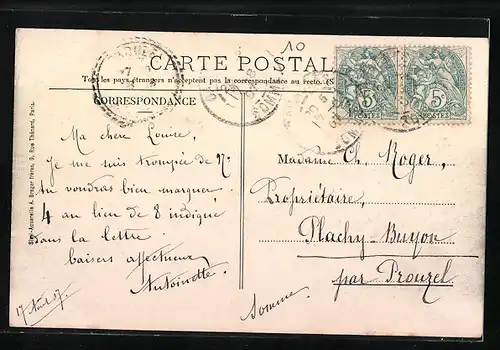 10
CARTE POSTALE
Tous les pays étrangers n'acceptent pas la correspondance au recto. (S
CORRESPONDANCE
Ma chère Louise,
Je me suis trompée de N°
tu voudras bien marquer
4 au lieu de 8 indiqué
dans la lettre.
baisers affectueux
Antoinette
17 Août 07.
Madame Ch. Roger,
Propriétaire,
Plachy-Buyon
par Prouzel
Somme.
5 5
POSTES POSTES
A. Breger frères, 9, Rue Thénard, Paris.